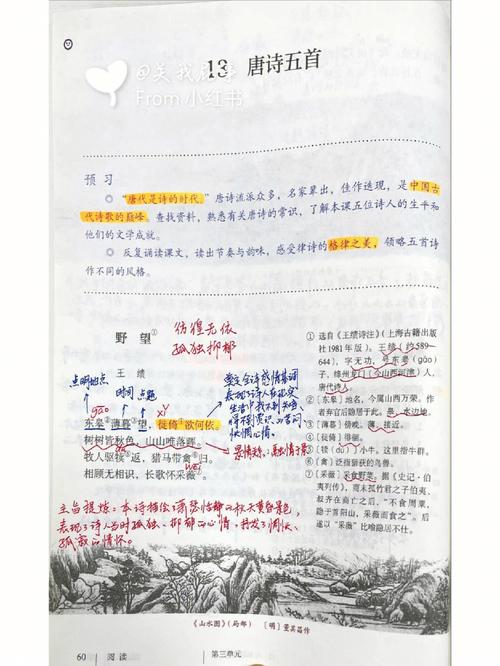 From 小红书
13 唐诗五首
预习
◎ “唐代是诗的时代。”唐诗流派众多，名家辈出，佳作迭现，是中国古
代诗歌的巅峰。查找资料，熟悉有关唐诗的常识，了解本课五位诗人的生平和
他们的文学成就。
◎ 反复诵读课文，读出节奏与韵味，感受律诗的格律之美，领略五首诗
作不同的风格。
野望①
彷徨无依
孤独抑郁
王绩
点明地点
时间 点题
gāo
xǐ yǐ
东皋②薄暮③望，徙倚④欲何依。
树树皆秋色，山山唯落晖。
牧人驱犊⑤返，猎马带禽⑥归。
相顾无相识，长歌怀采薇⑦。
奠定全诗感情基调
表现了诗人在现实
惆怅心情
主旨提炼：本诗描绘了
表现了诗人当时孤独、抑郁的心情，抒发了惆怅、
孤寂的情怀。
① 选自《王绩诗注》（上海古籍出版
社1981年版）。王绩（约589—
644），字无功，号东皋（gāo）
子，绛州龙门（今山西河津）人，
唐代诗人。
②〔东皋〕地名，今属山西万荣。作
者弃官后隐居于此。皋，水边地。
③〔薄暮〕傍晚。薄，接近。
④〔徙倚〕徘徊。
⑤〔犊〕小牛。这里指牛群。
⑥〔禽〕泛指猎获的鸟兽。
⑦〔采薇〕采食野菜。据《史记·伯
夷列传》，商末孤竹君之子伯夷、
叔齐在商亡之后，“不食周粟，
隐于首阳山，采薇而食之”。后
遂以“采薇”比喻隐居不仕。
《山水图》（局部） 〔明〕董其昌作
60 阅读 第三单元